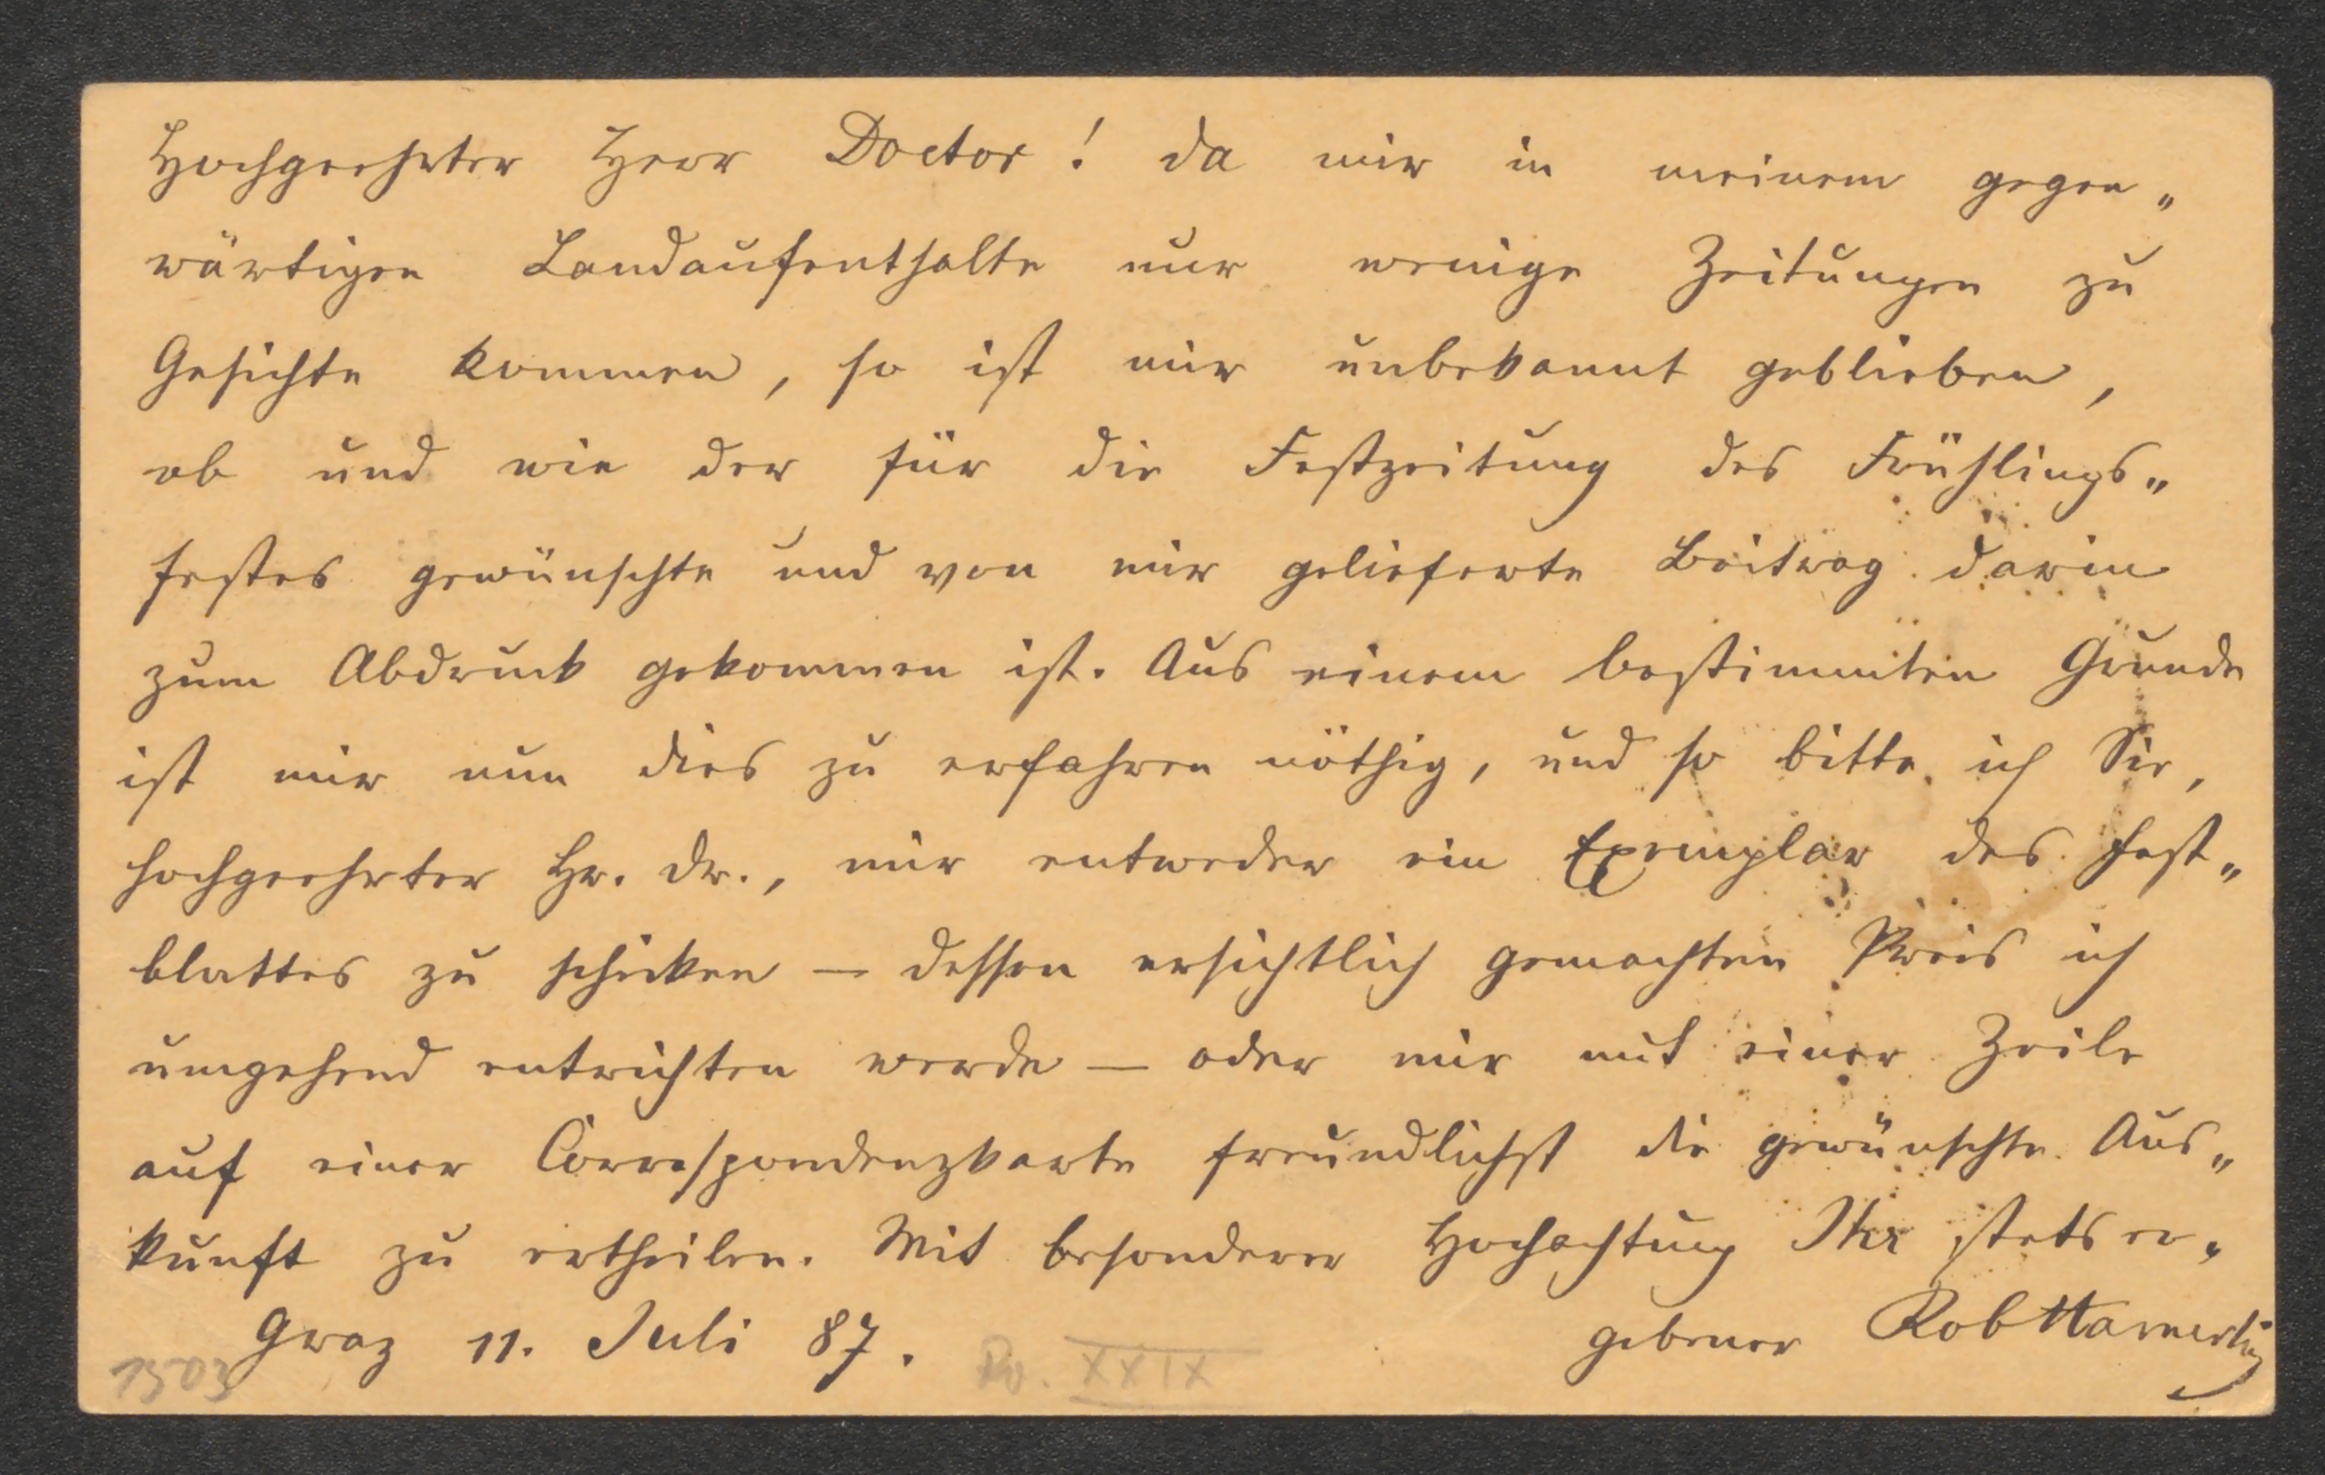 Hochgeehrter Herr Doctor! Da mir in meinem gegen„
wärtigen Landaufenthalte nur wenige Zeitungen zu
Gesichte kommen, so ist mir unbekannt geblieben,
ob und wie der für die Festzeitung des Frühlings„
festes gewünschte und von mir gelieferte Beitrag darin
zum Abdruck gekommen ist. Aus einem bestimmten Grunde
ist mir nun dies zu erfahren nöthig, und so bitte ich Sie,
hochgeehrter Hr. Dr., mir entweder ein Exemplar des Fest„
blattes zu schicken — dessen ersichtlich gemachten Preis ich
umgehend entrichten werde — oder mir mit einer Zeile
auf einer Correspondenzkarte freundlichst die gewünschte Aus„
kunft zu ertheilen. Mit besonderer Hochachtung Ihr stets er„
gebener Rob Hamerling
Graz 11. Juli 87.
1503 XXIX